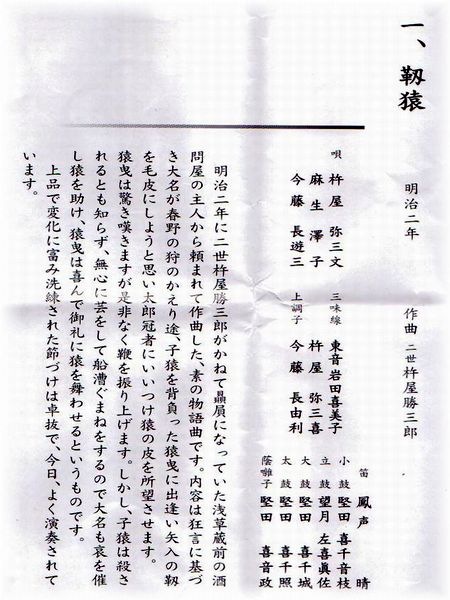 一、靱猿
明治二年
作曲 二世杵屋勝三郎
唄 杵屋 弥三文
麻生 澤子
今藤 長遊三
三味線 東音岩田喜美子
杵屋 弥三喜
上調子 今藤 長由利
笛 鳳声 晴
小鼓 堅田 喜千音枝
立鼓 望月 左喜眞佐
大鼓 堅田 喜千城
太鼓 堅田 喜千照
蔭囃子 堅田 喜音政
明治二年に二世杵屋勝三郎がかねて贔屓になっていた浅草蔵前の酒
問屋の主人から頼まれて作曲した、素の物語曲です。内容は狂言に基づ
き大名が春野の狩のかえり途、子猿を背負った猿曳に出逢い矢入の靱
を毛皮にしようと思い太郎冠者にいいつけ猿の皮を所望させます。
猿曳は驚き嘆きますが是非なく鞭を振り上げます。しかし、子猿は殺さ
れるとも知らず、無心に芸をして船漕ぐまねをするので大名も哀を催
し猿を助け、猿曳は喜んで御礼に猿を舞わせるというものです。
上品で変化に富み洗練された節づけは卓抜で、今日、よく演奏されて
います。